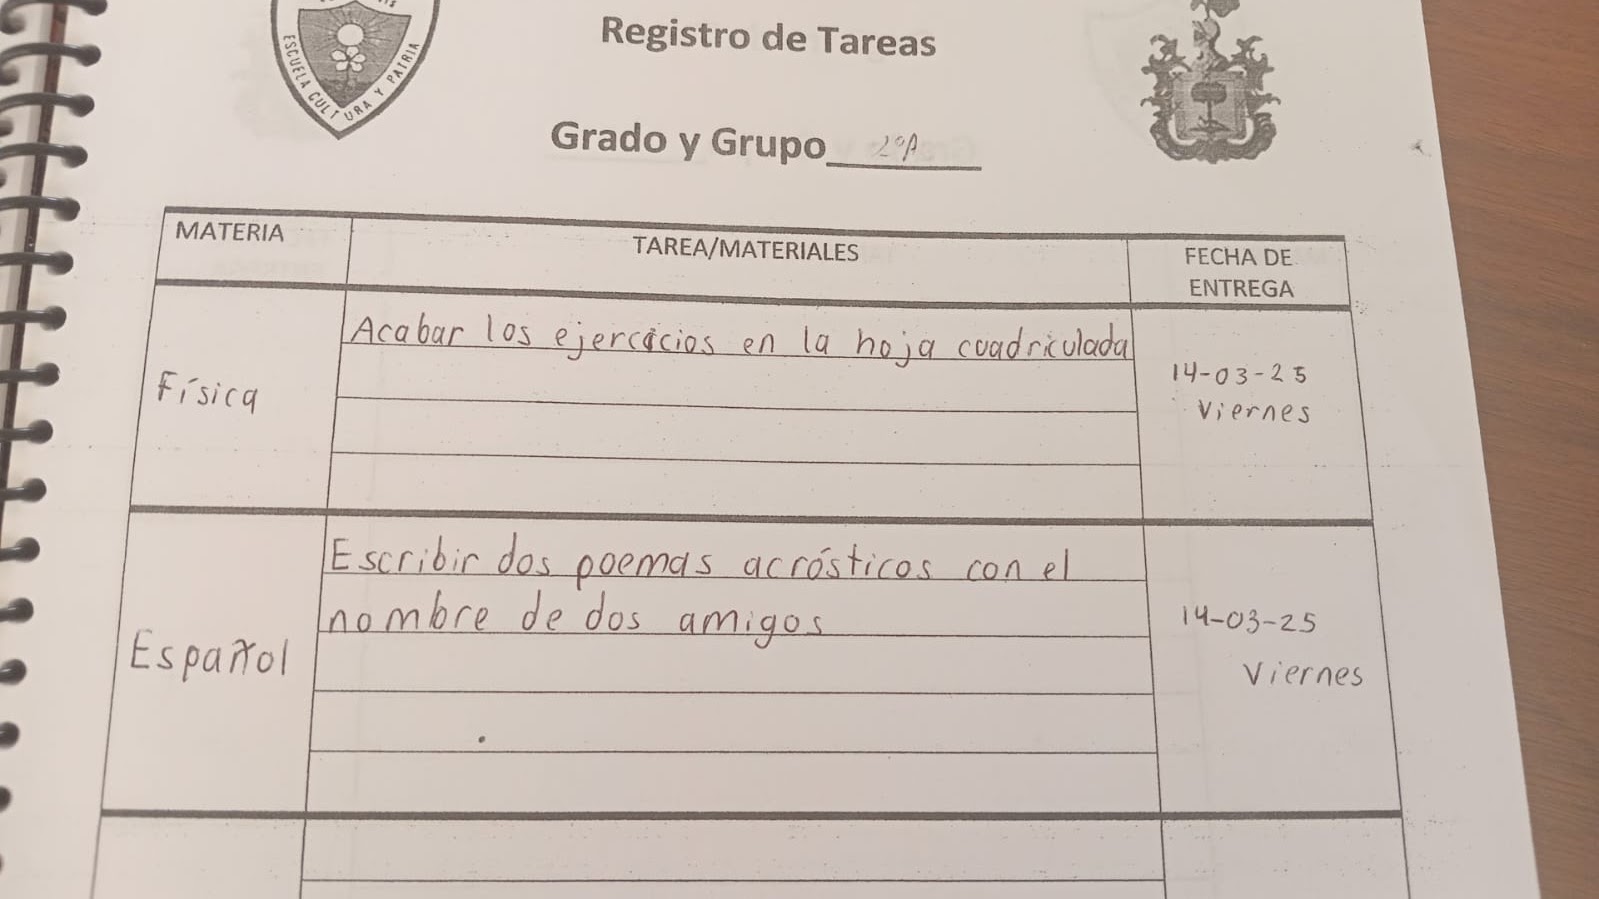 ESCUELA CULTURA Y PATRIA
Registro de Tareas
Grado y Grupo 2°A
MATERIA
TAREA/MATERIALES
FECHA DE
ENTREGA
Física
Acabar los ejercicios en la hoja cuadriculada
14-03-25
Viernes
Español
Escribir dos poemas acrósticos con el
nombre de dos amigos
14-03-25
Viernes